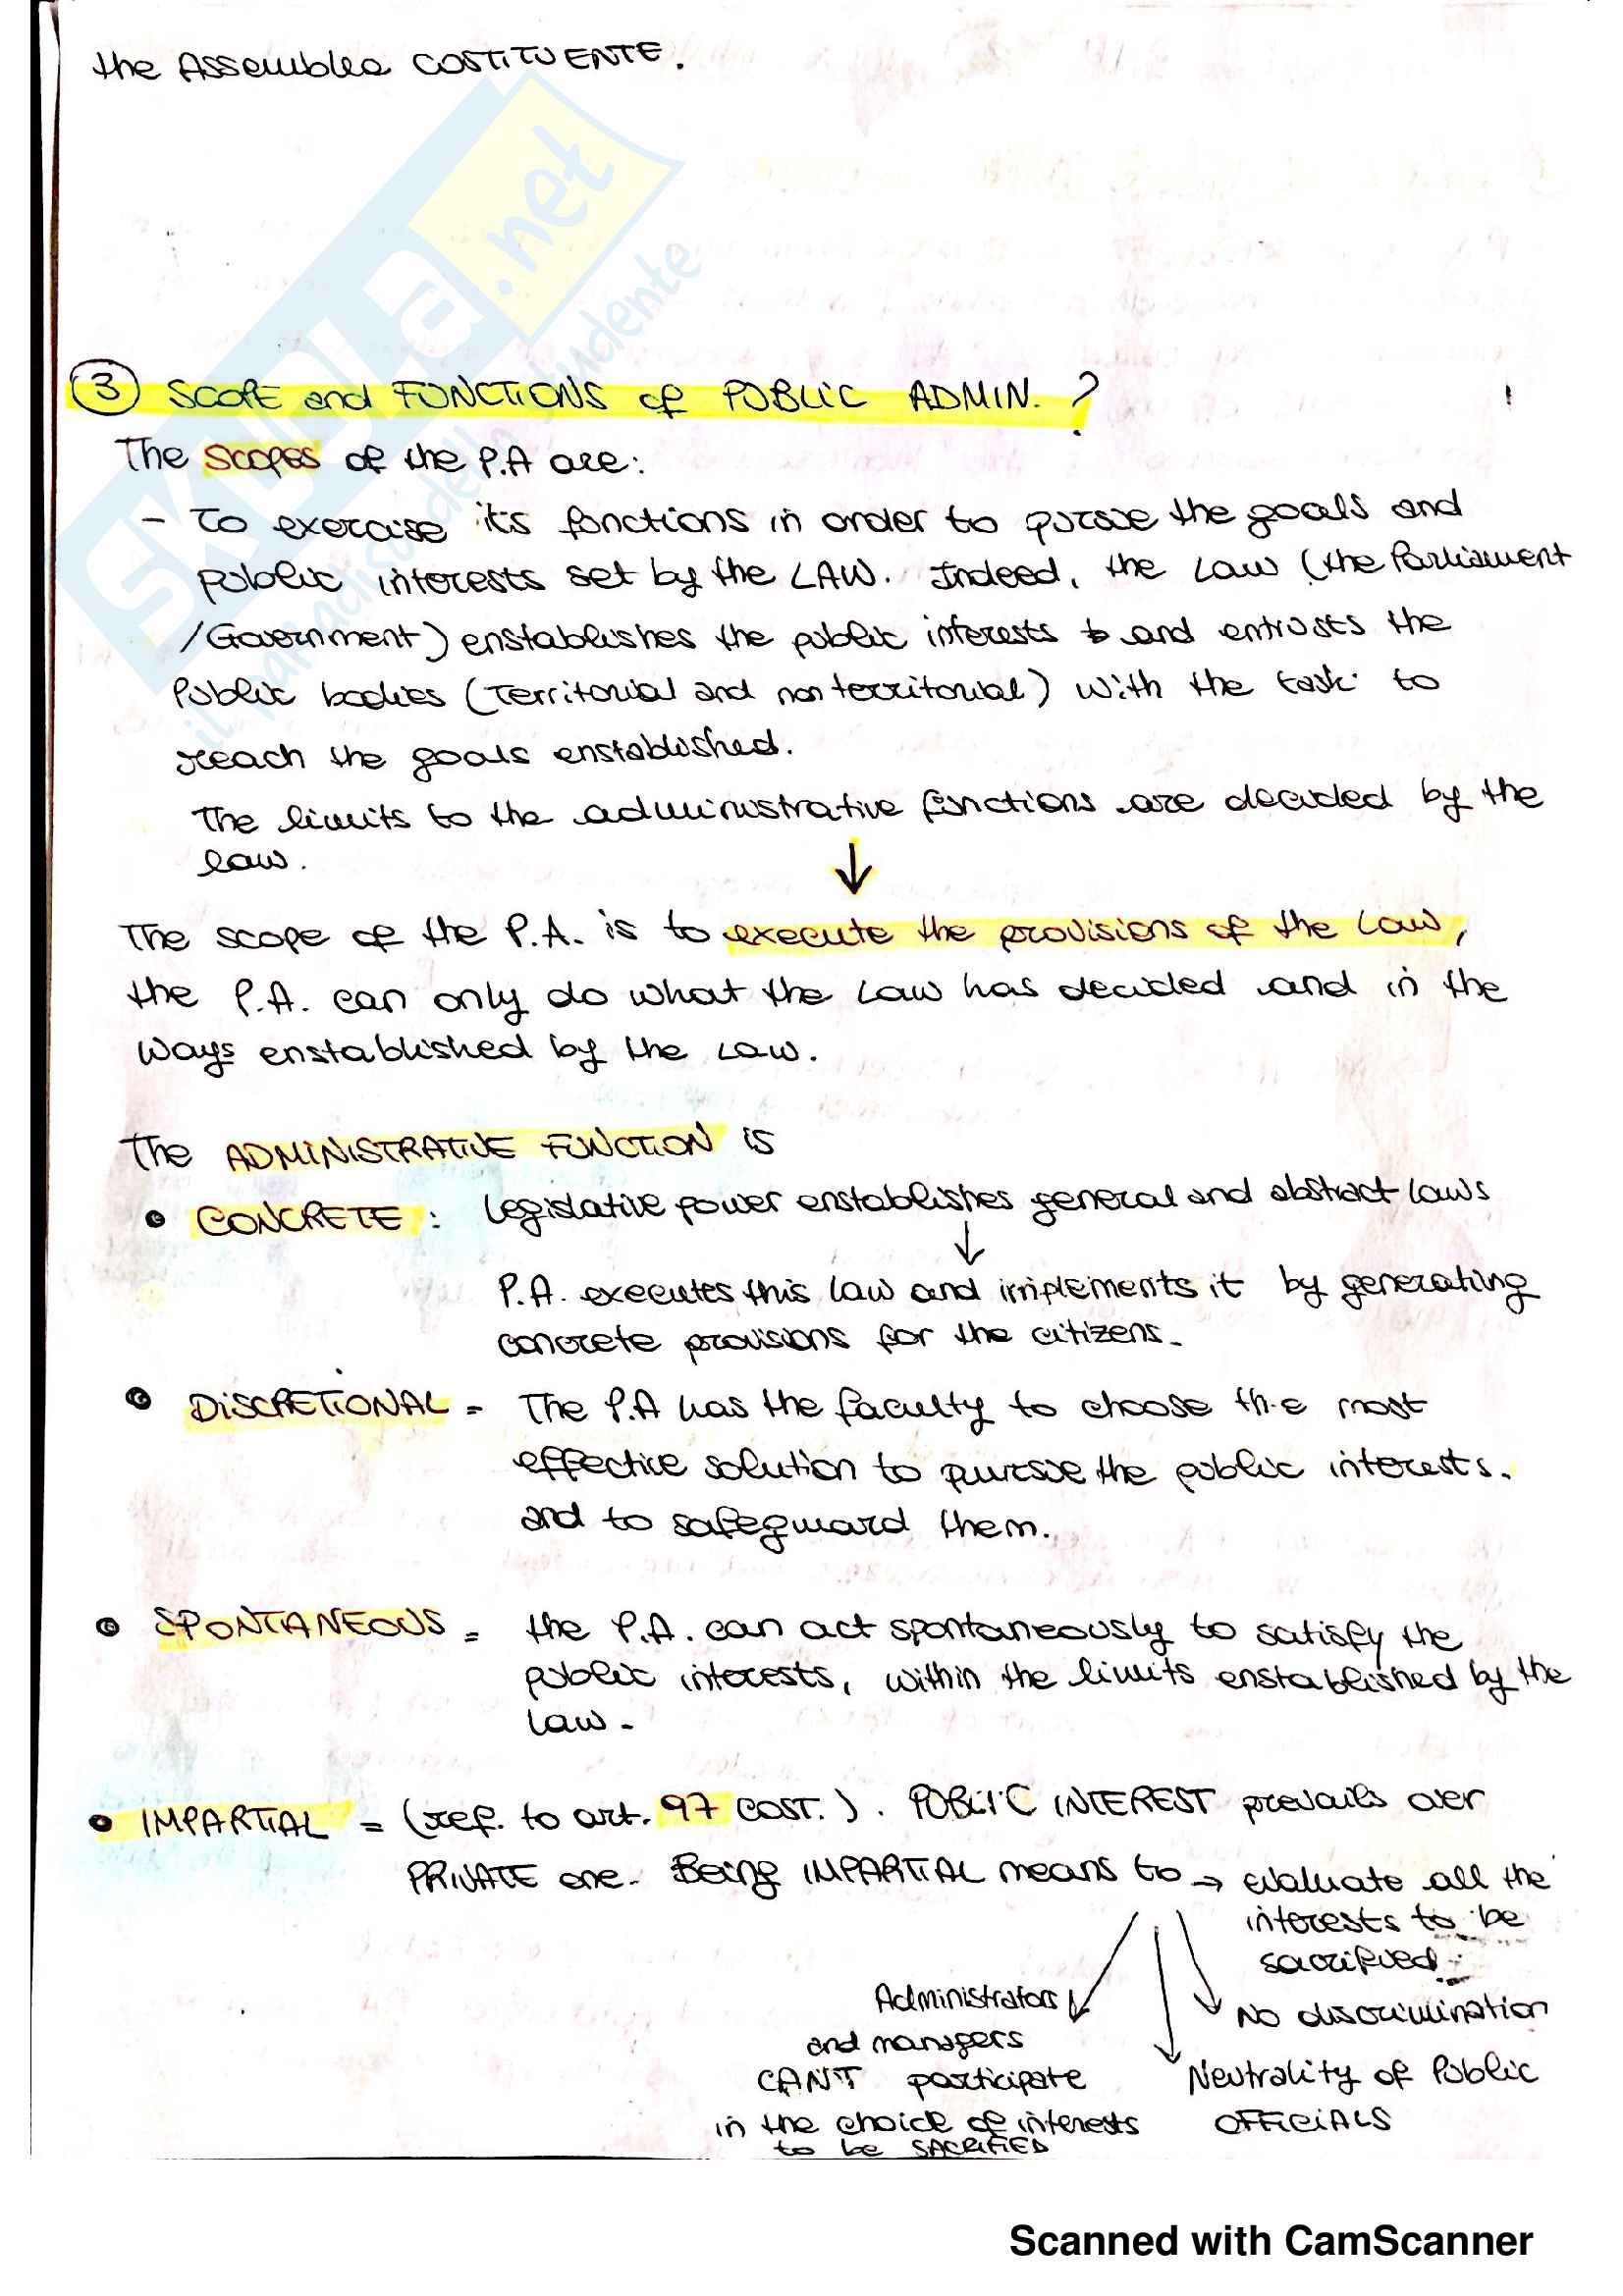 the Assemblea COSTITUENTE.
SKUOLA.net
il paradiso dello studente
3 SCOPE and FUNCTIONS of PUBLIC ADMIN. ?
The scopes of the P.A are:
- To exercise its functions in order to pursue the goals and
public interests set by the LAW. Indeed, the Law (the Parliament
/Government) enstablishes the public interests and entrusts the
Public bodies (Territorial and non territorial) with the task to
reach the goals enstablished.
The limits to the administrative functions are decided by the
law.
↓
The scope of the P.A. is to execute the provisions of the Law,
the P.A. can only do what the Law has decided and in the
Ways enstablished by the Law.
The ADMINISTRATIVE FUNCTION is
• CONCRETE : Legislative power enstablishes general and abstract laws
↓
P.A. executes this law and implements it by generating
concrete provisions for the citizens.
• DISCRETIONAL = The P.A has the faculty to choose the most
effective solution to pursue the public interests.
and to safeguard them.
• SPONTANEOUS = the P.A. can act spontaneously to satisfy the
public interests, within the limits enstablished by the
law.
• IMPARTIAL = (ref. to art. 97 COST.). PUBLIC INTEREST prevails over
PRIVATE one. Being IMPARTIAL means to → evaluate all the
interests to be
sacrified.
Administrators
and managers
CAN'T participate
in the choice of interests
to be SACRIFIED
No discrimination
Neutrality of Public
OFFICIALS
Scanned with CamScanner